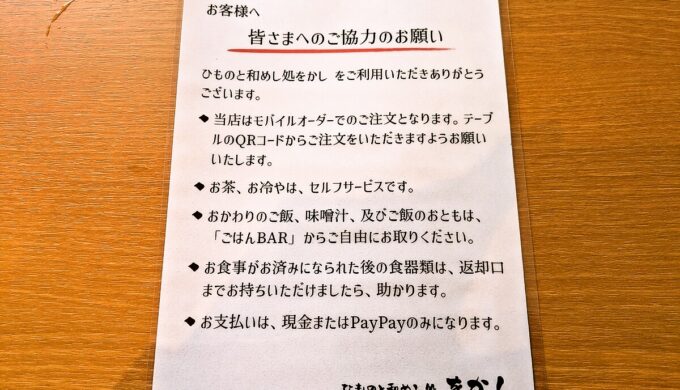 お客様へ
皆さまへのご協力のお願い
ひものと和めし処をかし をご利用いただきありがとう
ございます。
◆ 当店はモバイルオーダーでのご注文となります。テーブ
ルのQRコードからご注文をいただきますようお願い
いたします。
◆ お茶、お冷やは、セルフサービスです。
◆ おかわりのご飯、味噌汁、及びご飯のおともは、
「ごはんBAR」からご自由にお取りください。
◆ お食事がお済みになられた後の食器類は、返却口
までお持ちいただけましたら、助かります。
◆ お支払いは、現金またはPayPayのみになります。
ひものと和めし処 をかし